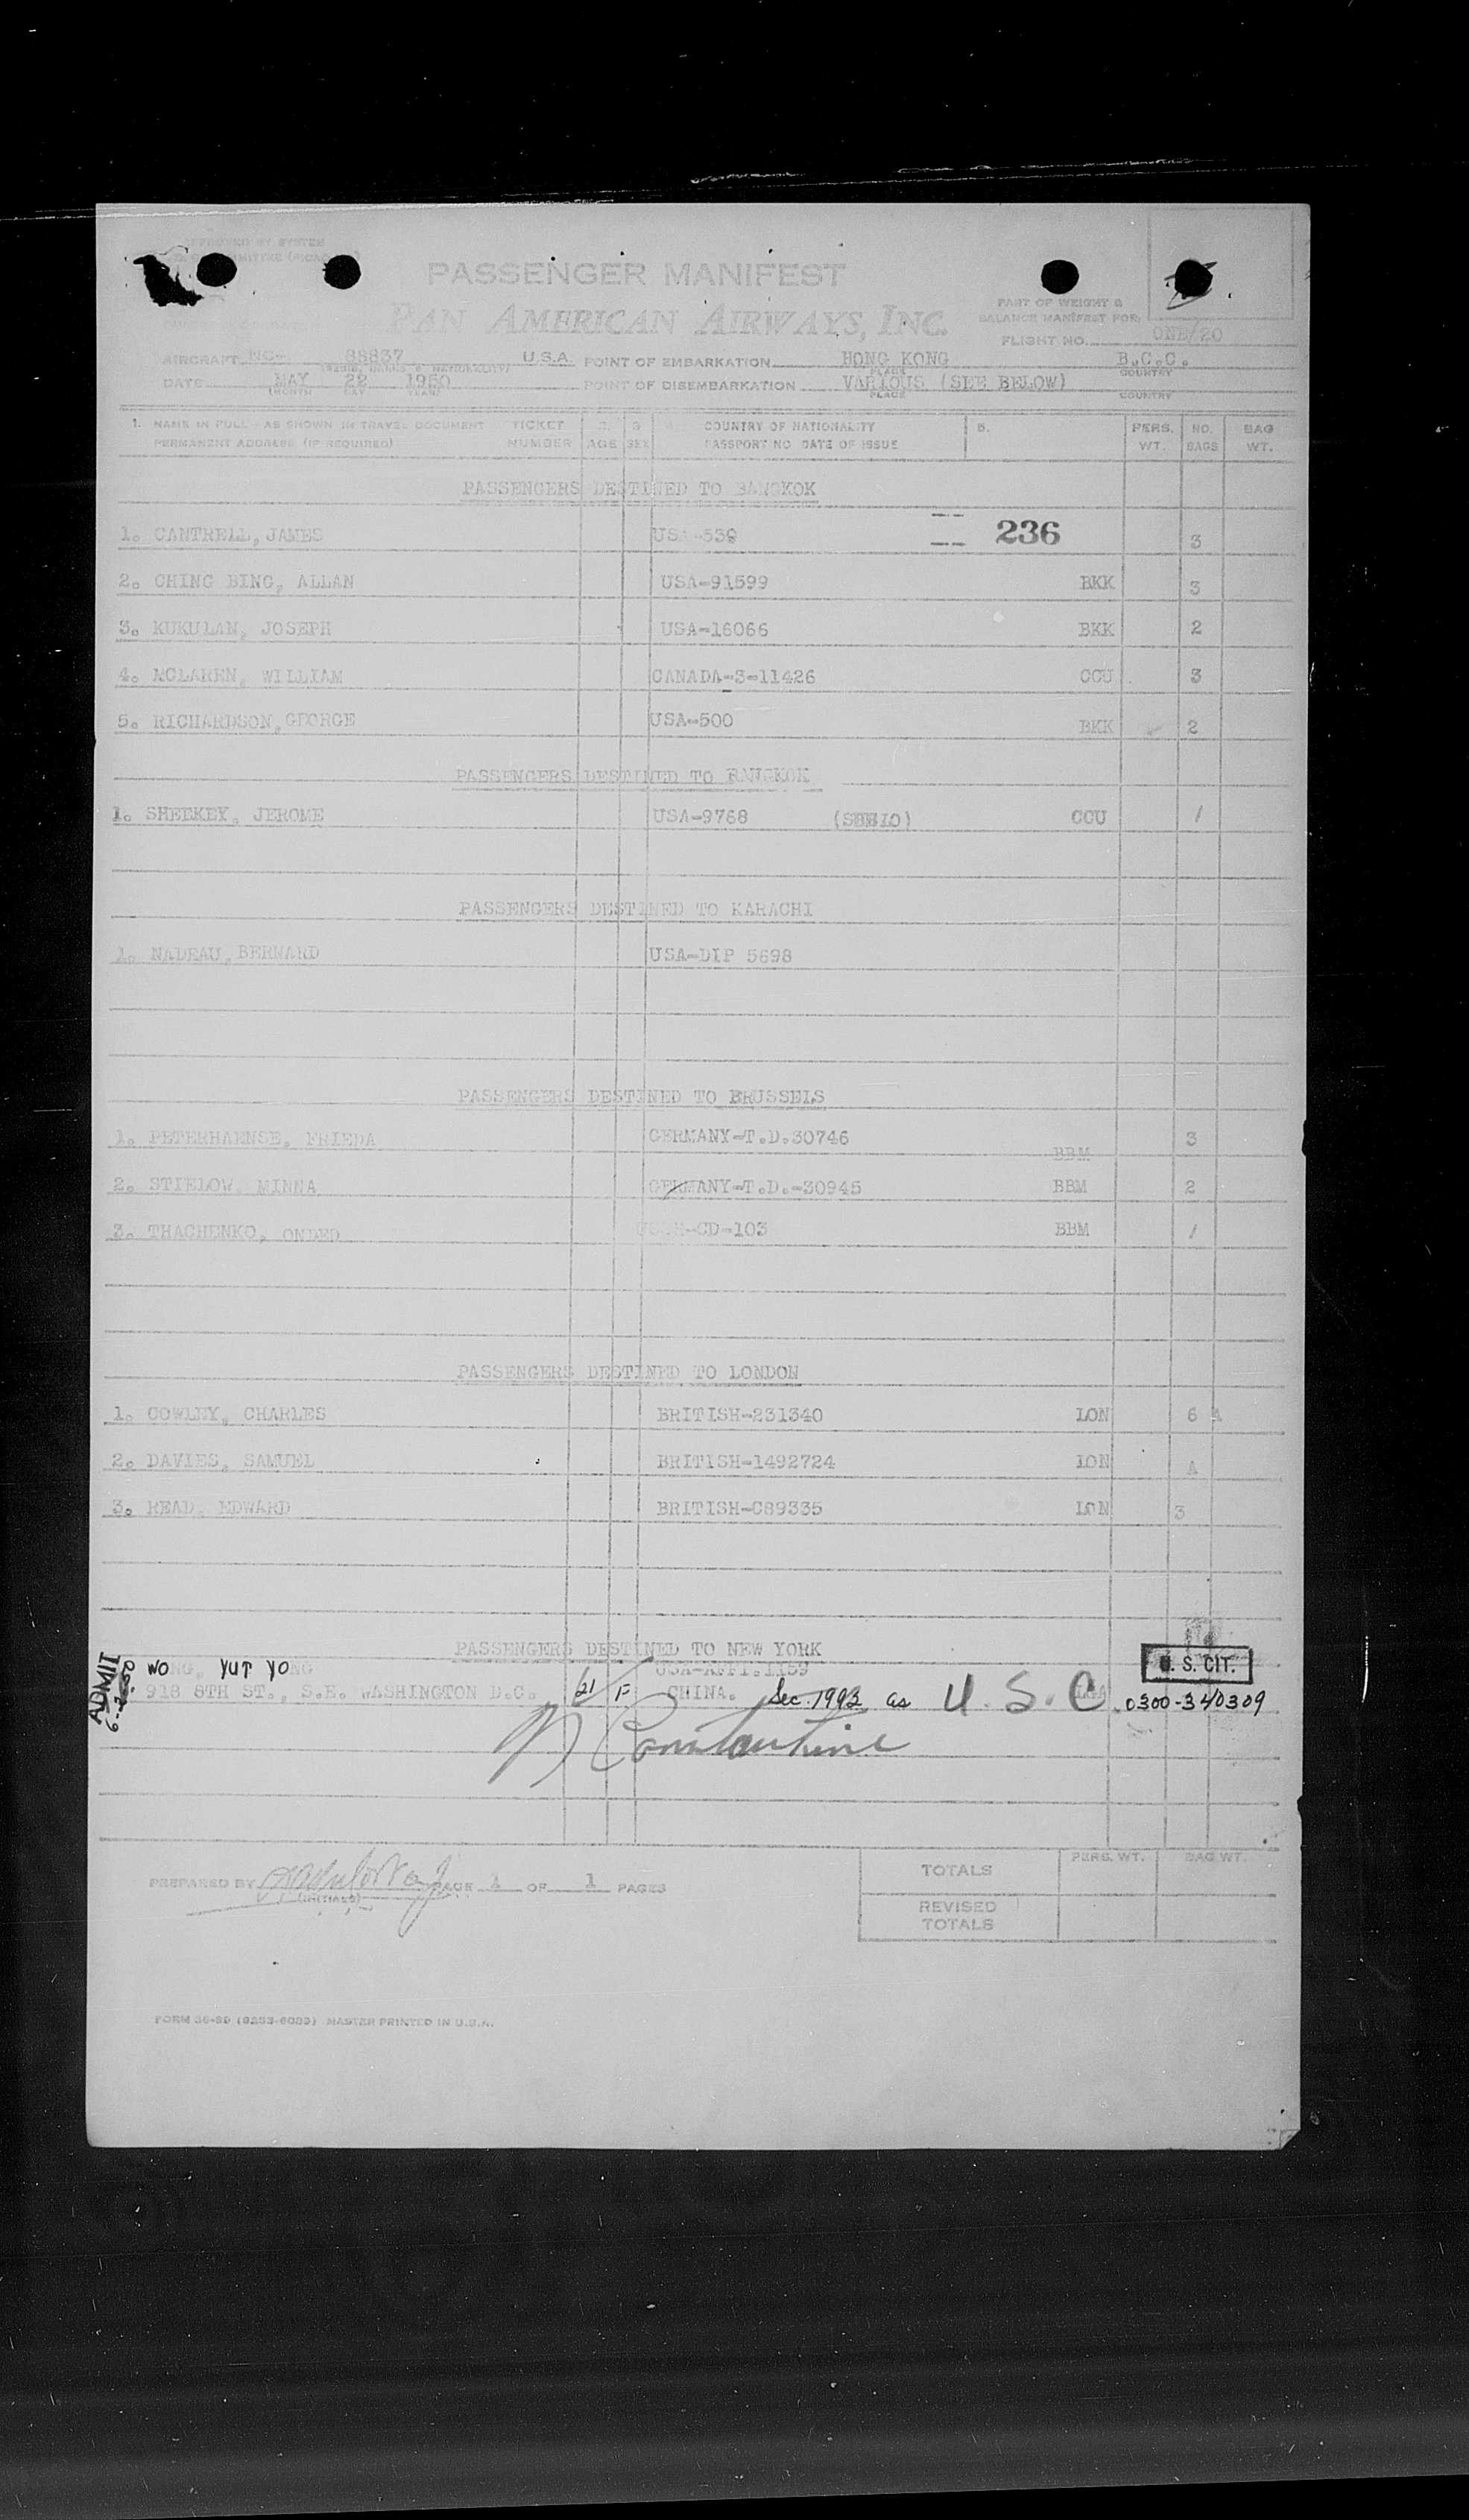 PASSENGER MANIFEST
PAN AMERICAN AIRWAYS, INC.
PART OF WEIGHT &
BALANCE MANIFEST FOR:
FLIGHT NO. ONE/20
AIRCRAFT NC- 88837 U.S.A. POINT OF EMBARKATION HONG KONG B.C.C.
PLACE COUNTRY
DATE MAY 22 1950 POINT OF DISEMBARKATION VARIOUS (SEE BELOW)
(MONTH DAY YEAR) PLACE COUNTRY
1. NAME IN FULL - AS SHOWN IN TRAVEL DOCUMENT TICKET 2. 3 COUNTRY OF NATIONALITY 5. PERS. NO. BAG
PERMANENT ADDRESS (IF REQUIRED) NUMBER AGE SEX PASSPORT NO. DATE OF ISSUE WT. BAGS WT.
PASSENGERS DESTINED TO BANGKOK
1. CANTRELL, JAMES USA-539 236 3
2. CHING BING, ALLAN USA-91599 BKK 3
3. KUKULAN, JOSEPH USA-16066 BKK 2
4. MCLAREN, WILLIAM CANADA-3-11426 CCU 3
5. RICHARDSON, GEORGE USA-500 BKK 2
PASSENGERS DESTINED TO
1. SHEEKEY, JEROME USA-9768 CCU 1
PASSENGERS DESTINED TO KARACHI
1. NADEAU, BERNARD USA-DIP 5698
PASSENGERS DESTINED TO BRUSSELS
1. PETERHAENSE, FRIEDA GERMANY-T.D.30746 BBM 3
2. STIELOW, MINNA GERMANY-T.D.-30945 BBM 2
3. THACHENKO, ONDED CD-103 BBM 1
PASSENGERS DESTINED TO LONDON
1. COWLEY, CHARLES BRITISH-231340 LON 6 A
2. DAVIES, SAMUEL BRITISH-1492724 LON A
3. READ, EDWARD BRITISH-C89335 LON 3
PASSENGERS DESTINED TO NEW YORK
ADMIT WONG, YUT YONG USA-AFFI.1159 U. S. CIT.
918 8TH ST., S.E. WASHINGTON D.C. 21 F CHINA. Sec. 1993 as U. S. C. 0300-340309
N Constantine
PREPARED BY PAGE 1 OF 1 PAGES
(INITIALS)
PERS. WT. BAG WT.
TOTALS
REVISED
TOTALS
MASTER PRINTED IN U.S.A.